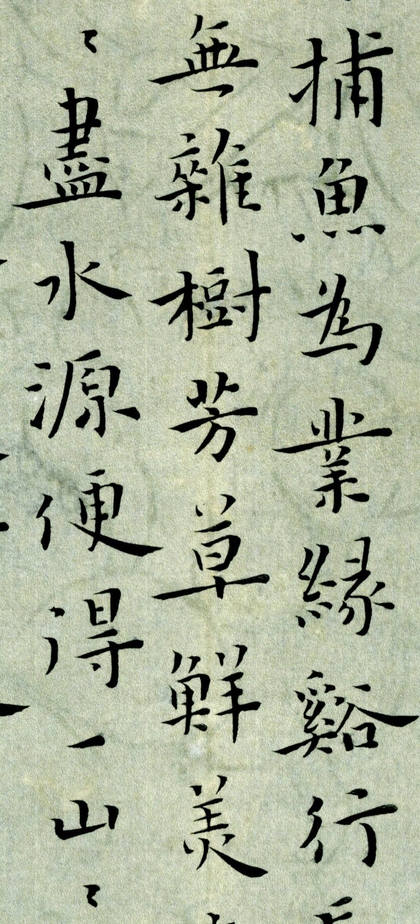 捕魚為業緣谿行
無雜樹芳草鮮美
〻盡水源便得一山〻